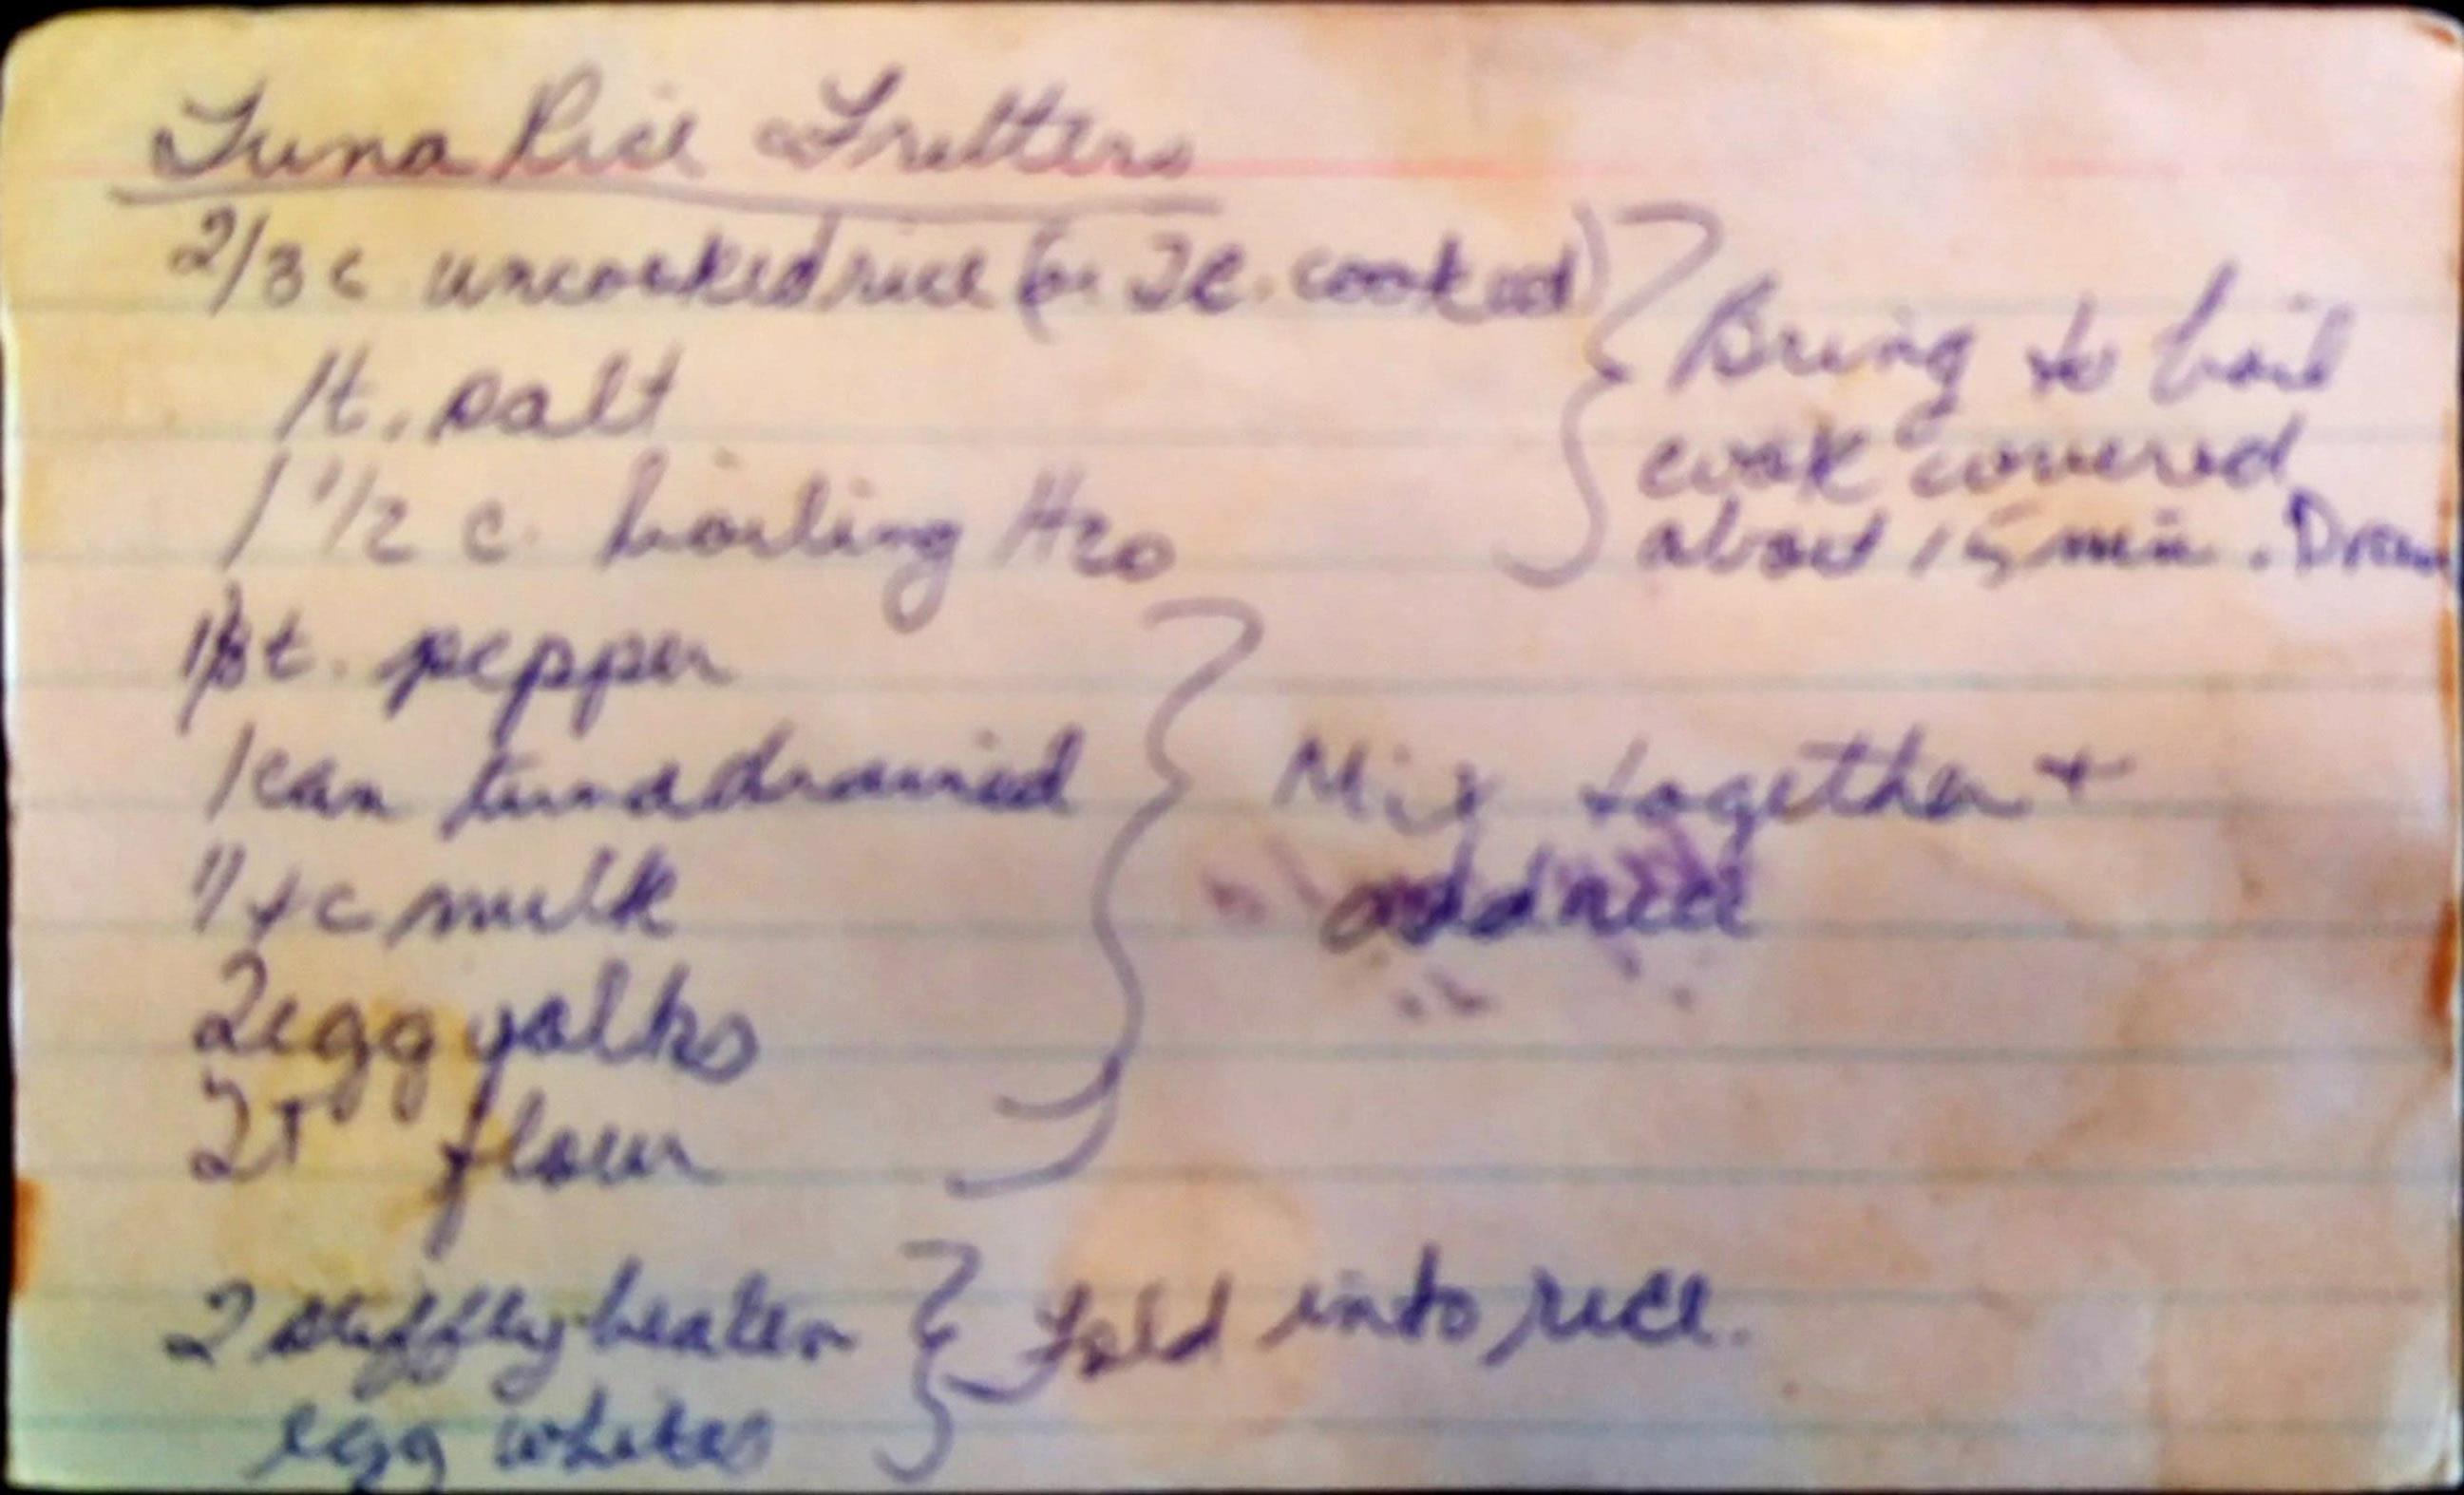 Tuna Rice Fritters
2/3 c uncooked rice (or 2 c. cooked)
1 t. salt
1 1/2 c. boiling H2O
Bring to boil
cook covered
about 15 min. Drain
1/8 t. pepper
1 can tuna drained
1/4 c milk
2 egg yolks
2T flour
Mix together +
add rice
2 stiffly beaten
egg whites
Fold into rice.